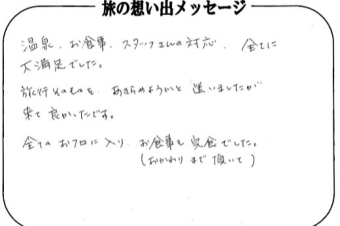 旅の想い出メッセージ
温泉、お食事、スタッフさんの対応、全てに
大満足でした。
旅行そのものを、あきらめようかと迷いましたが
来て良かったです。
全てのお風呂に入り、お食事も完食でした。
(おかわりまで頂いて)